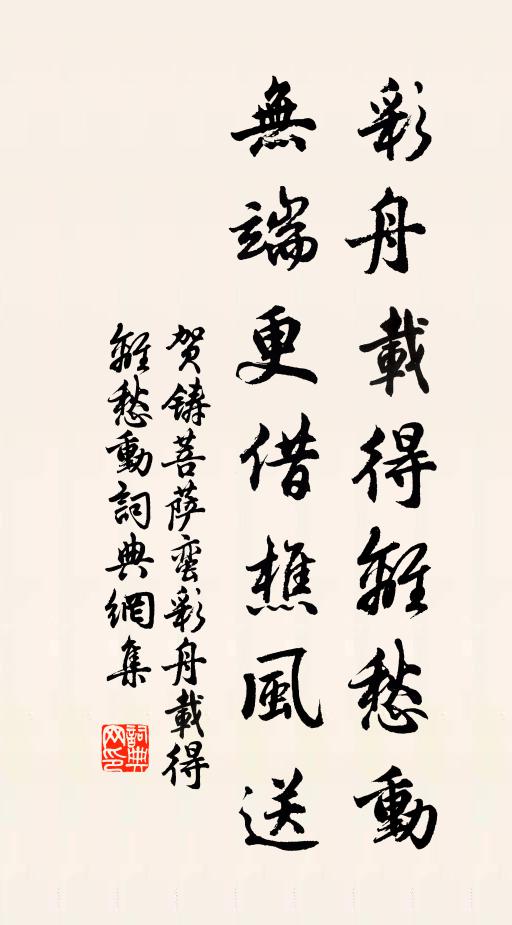 彩舟載得離愁動
無端更借樵風送
贺鑄菩萨蛮彩舟載得
離愁動詞典網集
詞典网印